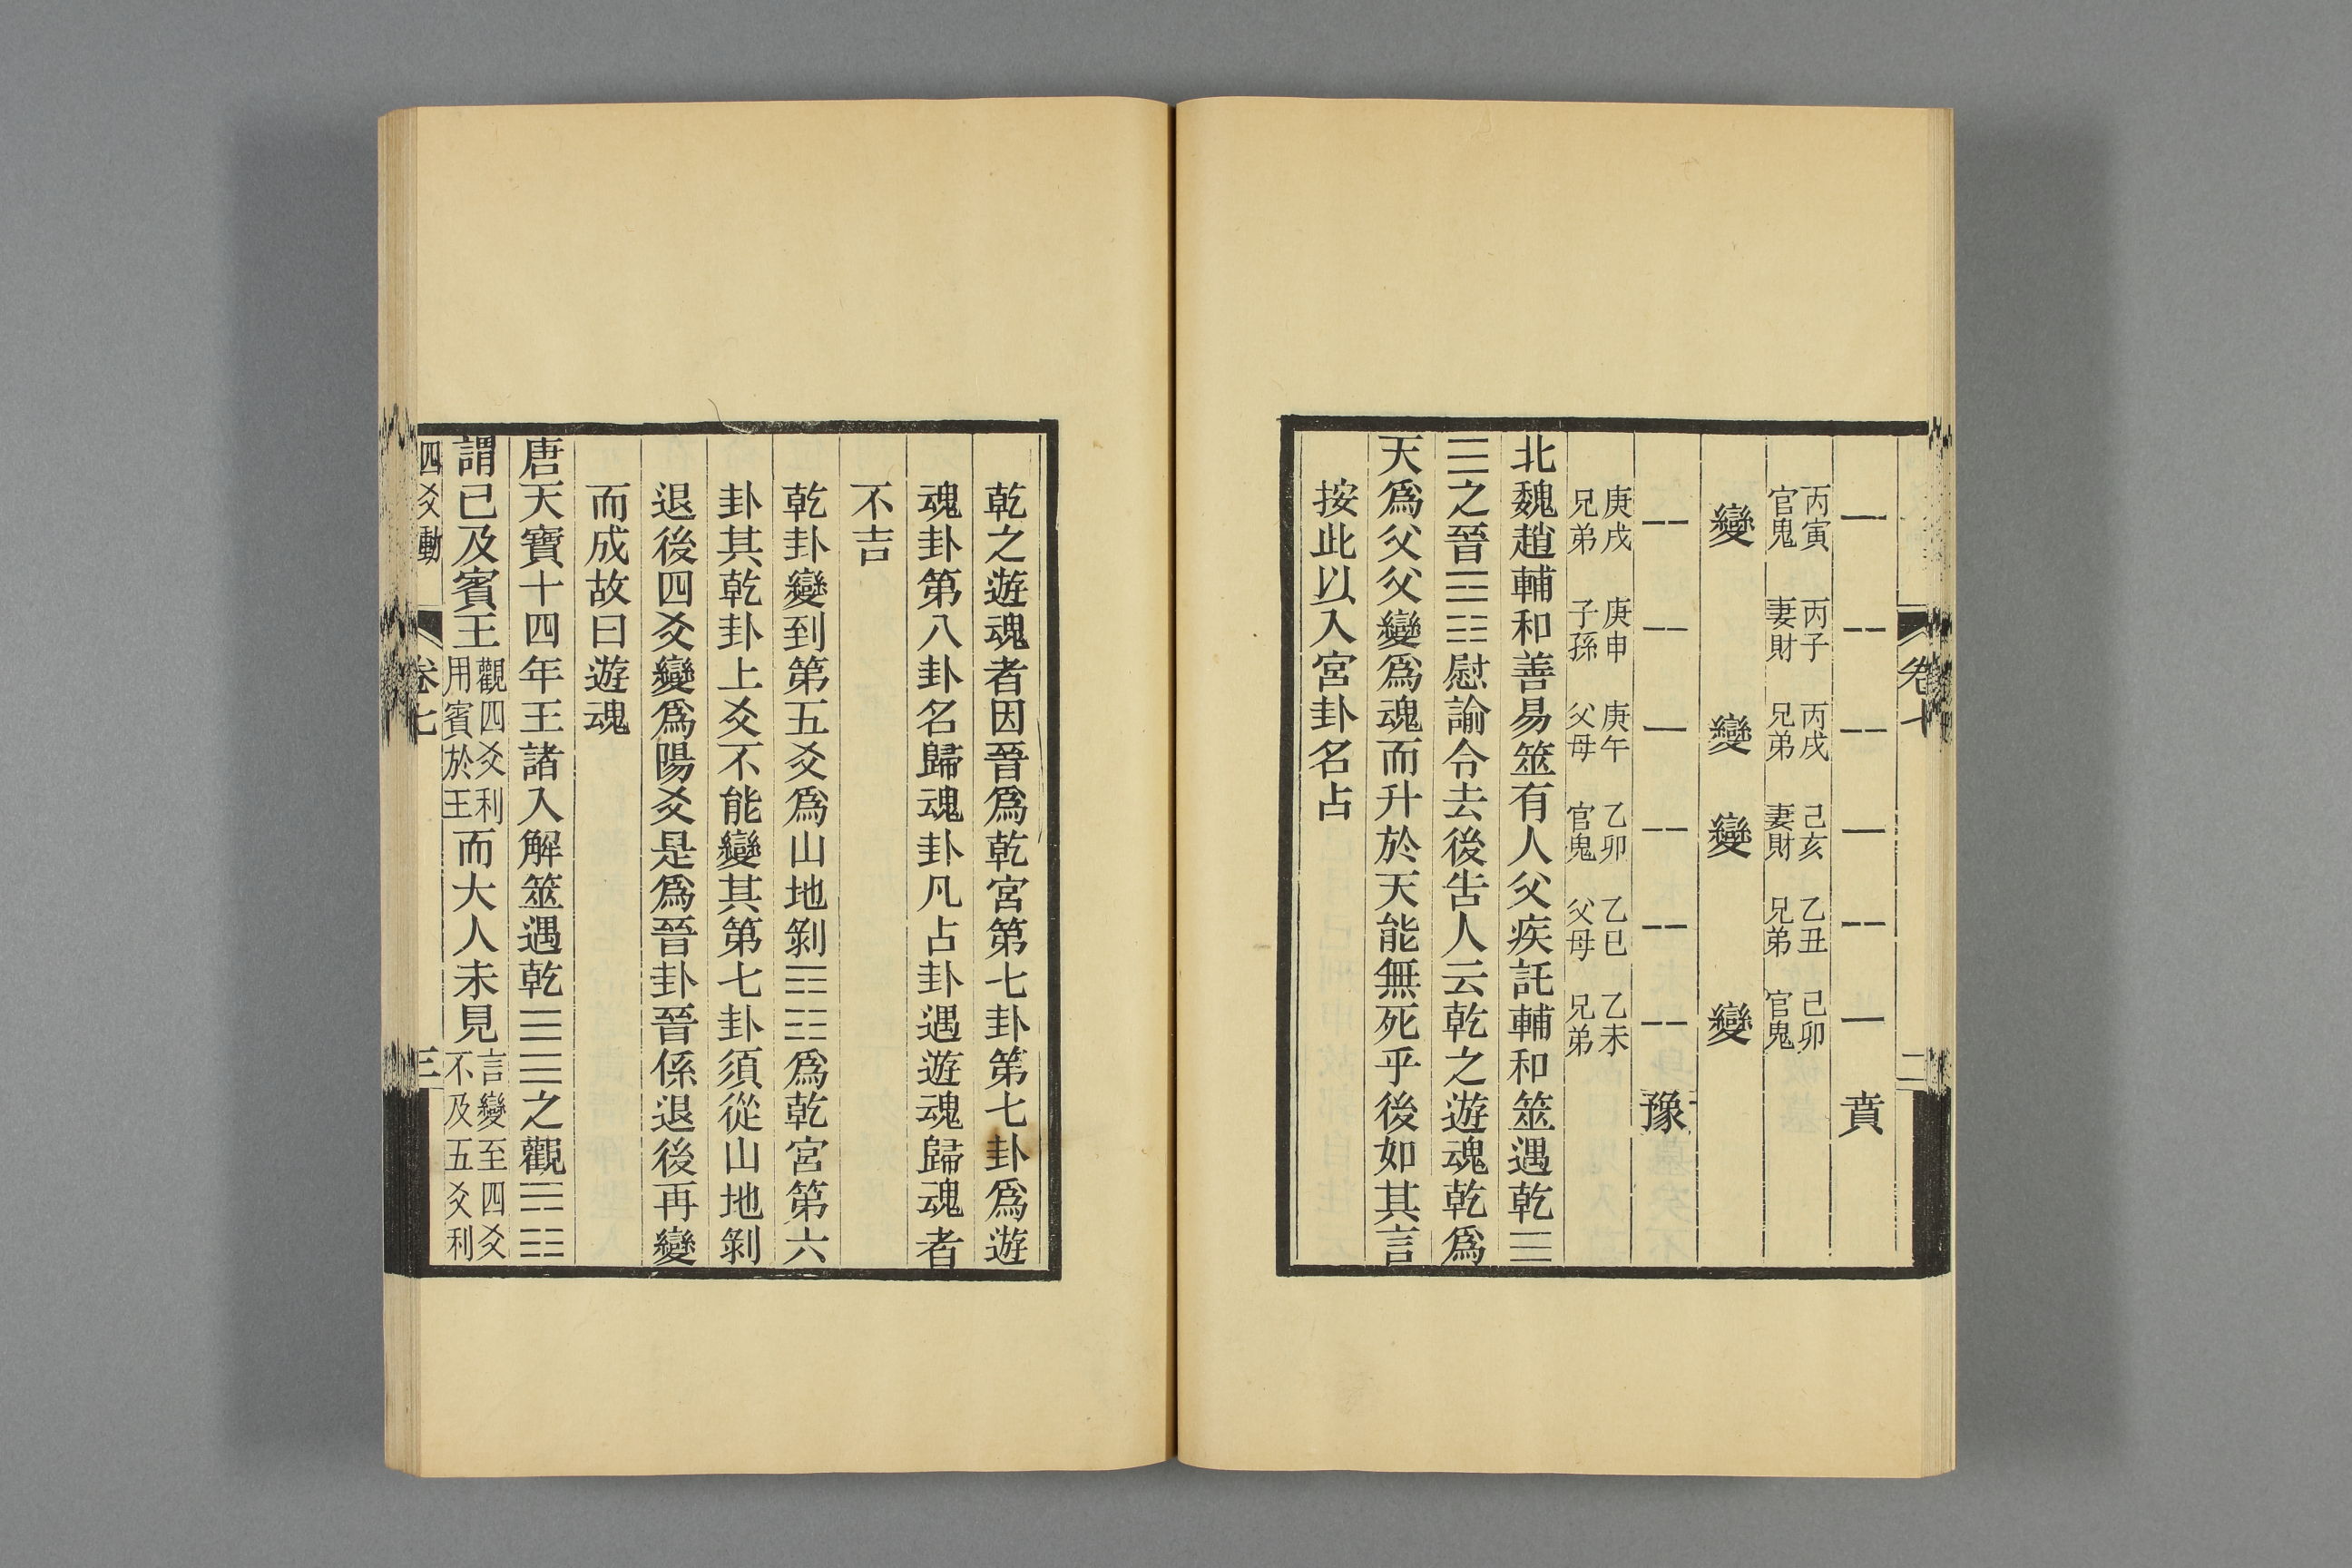 賁
丙寅 丙子 丙戌 己亥 乙丑 己卯
官鬼 妻財 兄弟 妻財 兄弟 官鬼
變 變 變 變
豫
庚戌 庚申 庚午 乙卯 乙巳 乙未
兄弟 子孫 父母 官鬼 父母 兄弟
北魏趙輔和善易筮有人父疾託輔和筮遇乾☰
☰之晉☲☷慰諭令去後告人云乾之遊魂乾爲
天爲父父變爲魂而升於天能無死乎後如其言
按此以入宮卦名占
乾之遊魂者因晉爲乾宮第七卦第七卦爲遊
魂卦第八卦名歸魂卦凡占卦遇遊魂歸魂者
不吉
乾卦變到第五爻爲山地剝☶☷爲乾宮第六
卦其乾卦上爻不能變其第七卦須從山地剝
退後四爻變爲陽爻是爲晉卦晉係退後再變
而成故曰遊魂
唐天寶十四年王諸入解筮遇乾☰☰之觀☴☷
謂已及賓王觀四爻利用賓於王而大人未見言變至四爻不及五爻利
四爻動 卷七 三